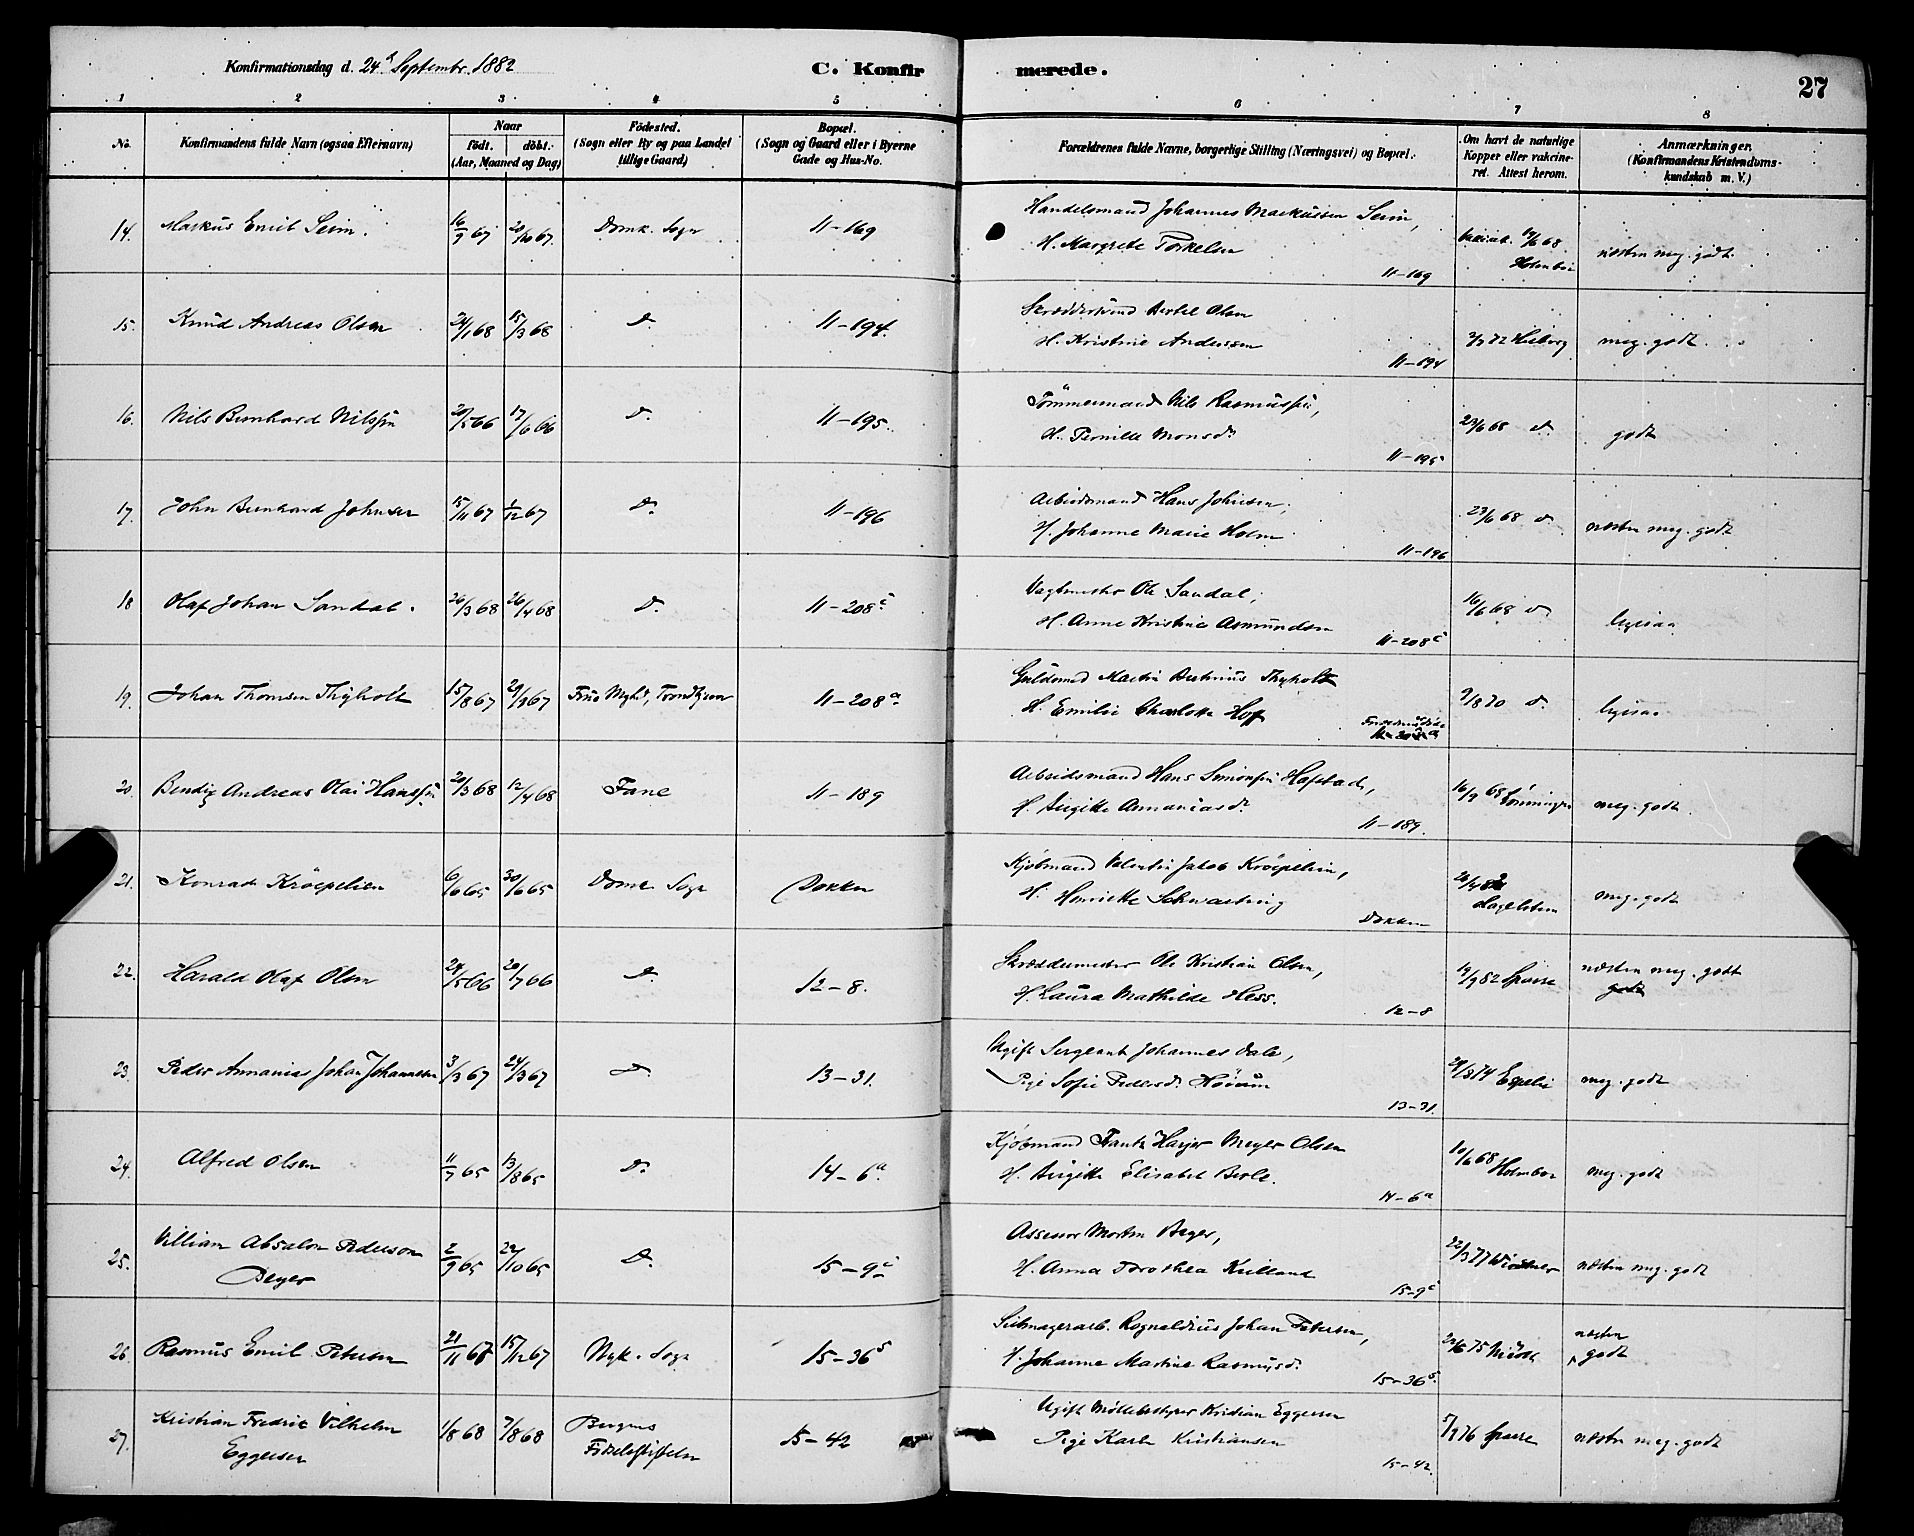 Konfirmationsdag d. 24d Septembr. 1882
C. Konfirmerede.
27
1 2 3 4 5 6 7 8
No. Konfirmandens fulde Navn (ogsaa Efternavn) Naar födt. döbt. (Aar, Maaned og Dag) Födested. (Sogn eller By og paa Landet tillige Gaard) Bopæl. (Sogn og Gaard eller i Byerne Gade og Hus-No. Forældrenes fulde Navne, borgerlige Stilling (Næringsvei) og Bopæl. Om havt de naturlige Kopper eller vakcineret. Attest herom. Anmærkninger. (Konfirmandens Kristendomskundskab m. V.)
14. Markus Emil Seim. 16/9 67 20/10 67 Domk. Sogn 11-169 Handelsmand Johannes Markussen Seim,
H. Margrete Torkelsen 11-169 68 Holmboe næsten meg. godt.
15. Knud Andreas Olsen 24/1 68 15/3 68 Do 11-194. Bertel Olsen
H. Kristine Andersen 11-194 2/7 72 Heiberg meg. godt
16. Nils Bernhard Nilssen 20/5 66 17/6 66 Do 11-195. Tömmermand Nils Rasmussen,
H. Pernille Monsdr 11-195 23/6 68 do godt
17. John Bernhard Johnsen 15/11 67 1/12 67 Do 11-196 Arbeidsmand Hans Johnsen,
H. Johanne Marie Holm 11-196 23/6 68 do næsten meg. godt
18 Olaf Johan Sandal. 26/3 68 26/4 68 Do 11-208c Vagtmester Ole Sandal,
H. Anne Kristine Asmundsen 11-208c 16/6 68 do ligesaa
19. Johan Thomsen Thyholt 15/8 67 29/9 67 Frue Mght, Trondhjem 11-208a Guldsmed Martin Thyholt
H. Emilie Charlotte Hoff 9/8 70 do ligesaa
20. Bendix Andreas Olai Hanssen 20/3 68 12/4 68 Fane 11-189 Arbeidsmand Hans Simonsen Hafstad,
H. Birgitte Annaniasdr 11-189. 16/9 68 Lönningen meg. godt
21. Konrad Kröepelien 6/6 65 30/6 65 Domk. Sogn Dokken Kjøbmand Valentin Jakob Kröepelien,
H. Henriette Schwarting Dokken Hagelsteen meg. godt
22. Harald Olaf Olsen 24/5 66 20/7 66 Do 12-8. Skræddermester Ole Kristian Olsen,
H. Laura Mathilde Hess. 12-8 19/9 82 Sparre næsten meg. godt
godt
23. Peder Annanias Johan Johannesen 3/3 67 24/3 67 Do 13-31. Ugift Sergeant Johannes Dale,
Pige Sofie Pedersdr 13-31. 74 Espelie meg. godt
24. Alfred Olsen 11/7 65 13/8 65 Do 14-6a. Kjøbmand Frantz Meyer Olsen
H. Birgitte Elisabet Berle. 14-6a 10/6 68 Holmboe meg. godt
25. Villiam Absalon Pederson
Beyer 2/9 65 22/10 65 Do 15-9c Assessor Morten Beyer,
H. Anna Dorothea Krilland 15-9c 22/3 77 Wiesener næsten meg. godt
26. Rasmus Emil Petersen 21/11 67 15/12 67 Nyk. Sogn 15-36b Seilmagerarb. Rognaldius Johan Petersen,
H. Johanne Martine Rasmusdr 15-36b. 75 næsten
godt
27. Kristian Fredrik Vilhelm
Eggersen 1/8 68 7/8 68 Bergens
Födselsstiftelse 15-42 Ugift Möllebestyrer Kristian Eggersen
Pige Karen Kristiansen 15-42. 5/9 76 Sparre næsten meg. godt